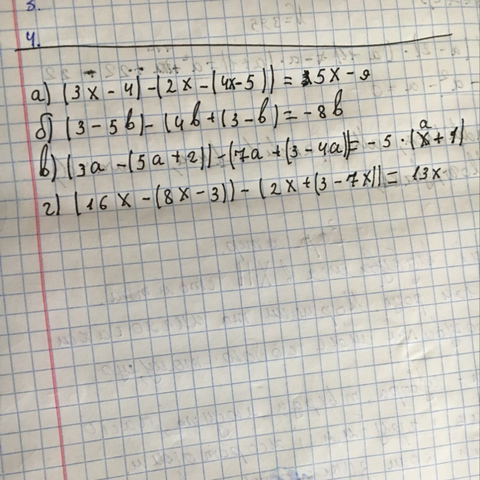 4.
а) (3x - 4) - (2x - (4x - 5)) = 5x - 9
б) (3 - 5b) - (4b + (3 - b) = -8b
в) (3a - (5a + 2)) - (7a + (3 - 4a) = -5 · (a + 1)
г) (16x - (8x - 3)) - (2x + (3 - 7x)) = 13x